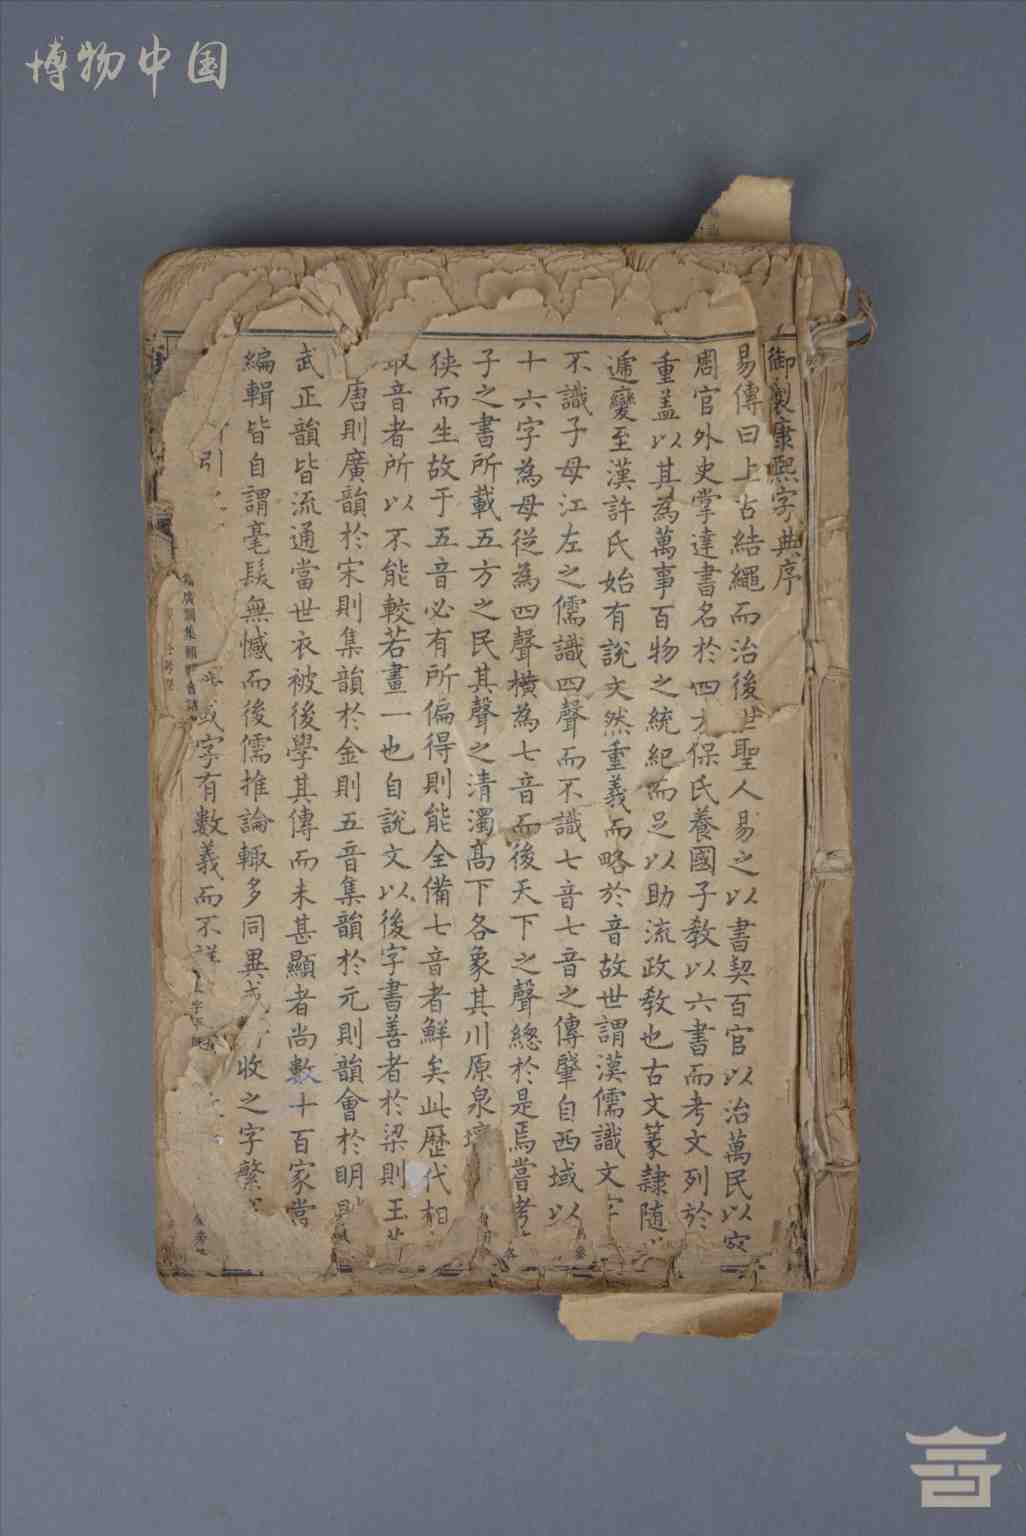 博物中国
御製康熙字典序
易傳曰上古結繩而治後世聖人易之以書契百官以治萬民以察
周官外史掌達書名於四方保氏養國子教以六書而考文列於
重蓋以其為萬事百物之統紀而足以助流政教也古文篆隸随
遞變至漢許氏始有說文然重義而略於音故世謂漢儒識文字
不識子母江左之儒識四聲而不識七音七音之傳肇自西域以
十六字為母從為四聲橫為七音而後天下之聲總於是焉嘗考
子之書所載五方之民其聲之清濁高下各象其川原泉壤
狹而生故于五音必有所偏得則能全備七音者鮮矣此歷代相
取音者所以不能較若畫一也自說文以後字書善者於梁則玉
唐則廣韻於宋則集韻於金則五音集韻於元則韻會於明則
武正韻皆流通當世衣被後學其傳而未甚顯者尚數十百家當
編輯皆自謂毫髮無憾而後儒推論輒多同異或 收之字繁
引 或字有數義而不詳